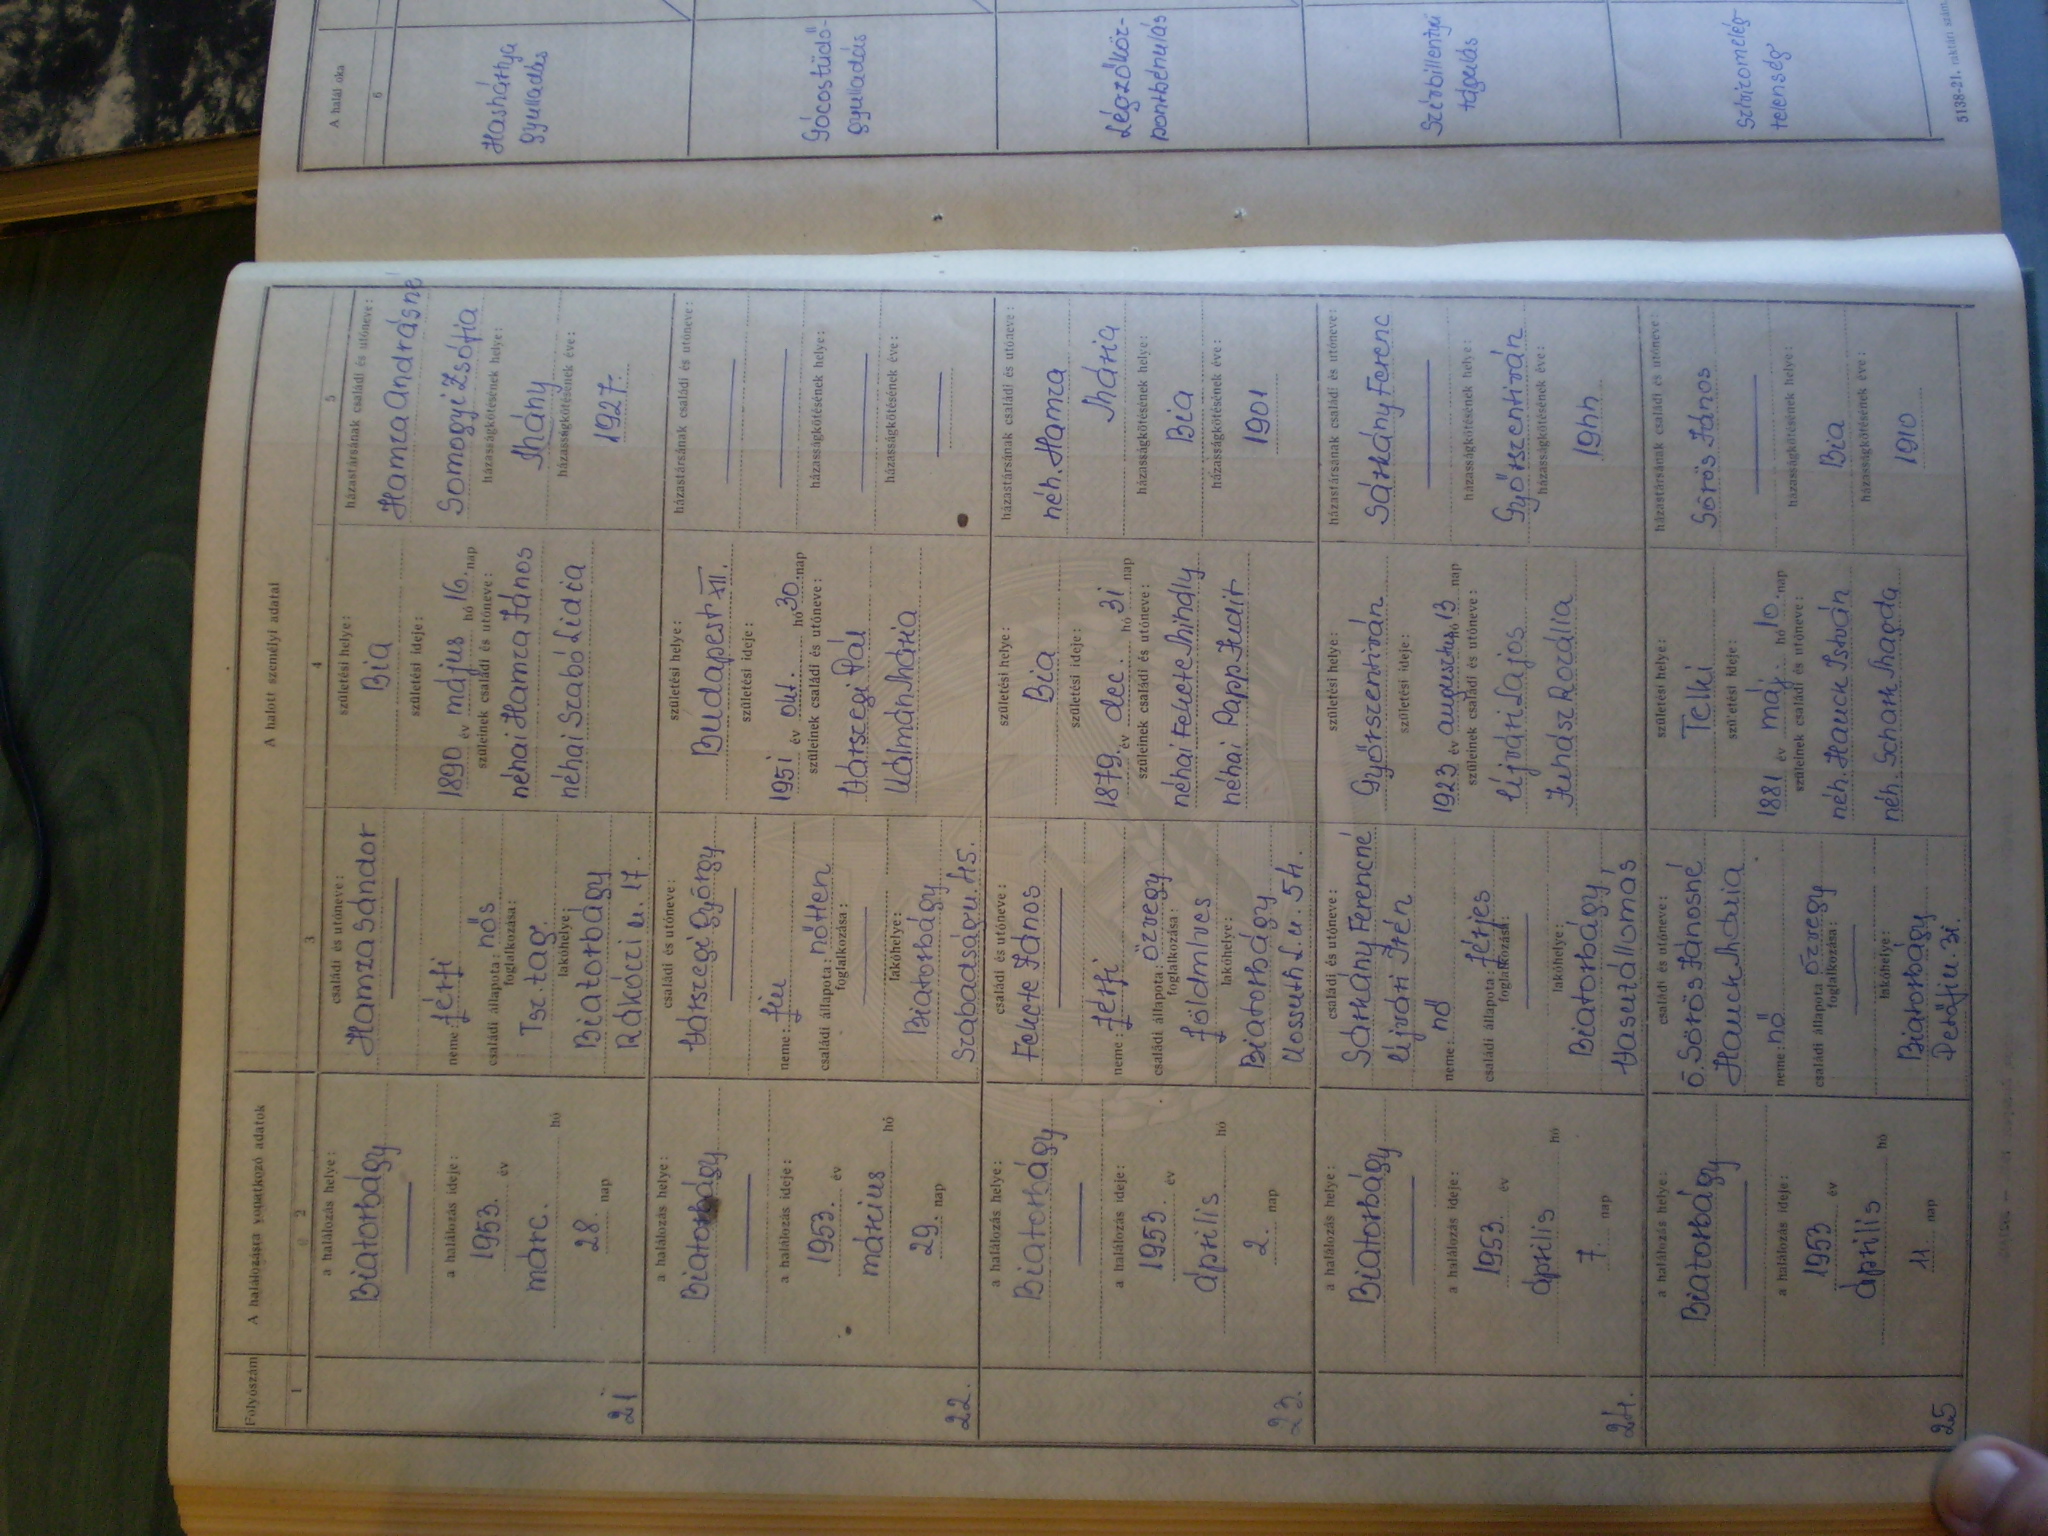 A halálozásra vonatkozó adatok
A halott személyi adatai
A halál oka
Folyószám
1
2
3
4
5
6
a halálozás helye:
Biatorbágy
a halálozás ideje:
1953. év
márc. hó
28. nap
21
családi és utóneve:
Hamza Sándor
neme: férfi
családi állapota: nős
foglalkozása:
Tsz tag.
lakóhelye:
Biatorbágy
Rákóczi u. 17.
születési helye:
Bia
születési ideje:
1890 év május hó 16. nap
szüleinek családi és utóneve:
néhai Hamza János
néhai Szabó Lidia
házastársának családi és utóneve:
Hamza Andrásné
Somogyi Zsófia
házasságkötésének helye:
Mány
házasságkötésének éve:
1927.
Hashártya
gyulladás
a halálozás helye:
Biatorbágy
a halálozás ideje:
1953. év
március hó
29. nap
22.
családi és utóneve:
Várszegi György
neme: fiu
családi állapota: nőtlen
foglalkozása:
lakóhelye:
Biatorbágy
Szabadság u. 45.
születési helye:
Budapest XII.
születési ideje:
1951 év okt. hó 30. nap
szüleinek családi és utóneve:
Várszegi Pál
Kálmán Mária
házastársának családi és utóneve:
házasságkötésének helye:
házasságkötésének éve:
Gócostüdő-
gyulladás
a halálozás helye:
Biatorbágy
a halálozás ideje:
1953. év
április hó
2. nap
23.
családi és utóneve:
Fekete János
neme: férfi
családi állapota: özvegy
foglalkozása:
földmives
lakóhelye:
Biatorbágy
Kossuth L. u. 54.
születési helye:
Bia
születési ideje:
1879. év dec. hó 31 nap
szüleinek családi és utóneve:
néhai Fekete Mihály
néhai Papp Judit
házastársának családi és utóneve:
néh. Hamza
Mária
házasságkötésének helye:
Bia
házasságkötésének éve:
1901
Légzőköz-
pontbénulás
a halálozás helye:
Biatorbágy
a halálozás ideje:
1953 év
április hó
7. nap
24.
családi és utóneve:
Sárkány Ferencné
Ujvári Irén
neme: nő
családi állapota: férjes
foglalkozása:
lakóhelye:
Biatorbágy,
Vasutállomás
születési helye:
Győrszentiván
születési ideje:
1923 év augusztus hó 13 nap
szüleinek családi és utóneve:
Ujvári Lajos
Juhász Rozália
házastársának családi és utóneve:
Sárkány Ferenc
házasságkötésének helye:
Győrszentiván
házasságkötésének éve:
1944
Szivbillentyű
tágulás
a halálozás helye:
Biatorbágy
a halálozás ideje:
1953 év
április hó
11. nap
25
családi és utóneve:
ö. Sörös Jánosné
Hauck Mária
neme: nő
családi állapota: özvegy
foglalkozása:
lakóhelye:
Biatorbágy
Petőfi u. 31.
születési helye:
Telki
születési ideje:
1881 év máj. hó 10. nap
szüleinek családi és utóneve:
néh. Hauck István
néh. Schank Magda
házastársának családi és utóneve:
Sörös János
házasságkötésének helye:
Bia
házasságkötésének éve:
1910
Szivizomelég-
telenség
5138-21. raktári szám.